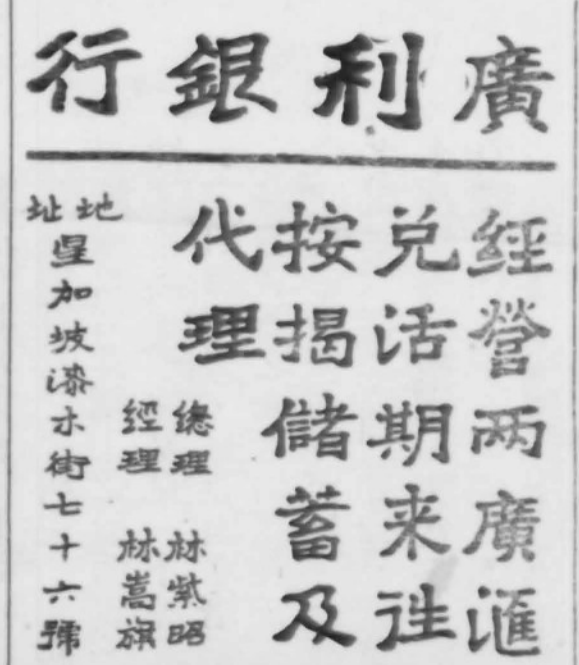 廣利銀行
經營两廣滙
兑活期来往
按揭儲蓄及
代理
總理 林紫昭
經理 林嵩旗
地址
星加坡漆木街七十六號